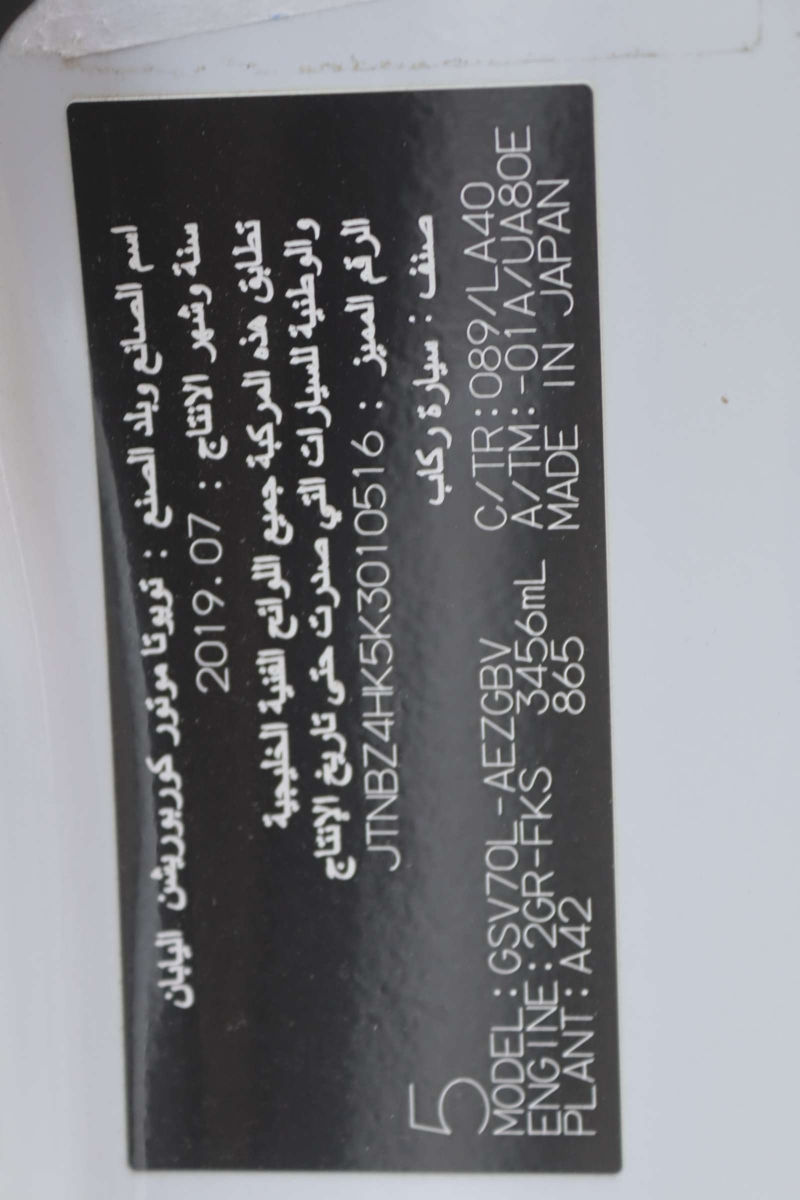 اسم الصانع وبلد الصنع : تويوتا موتور كوربوريشن اليابان
سنة وشهر الانتاج : 2019.07
تطابق هذه المركبة جميع اللوائح الفنية الخليجية
والوطنية للسيارات التي صدرت حتى تاريخ الإنتاج
الرقم المميز : JTNBZ4HK5K3010516
صنف : سيارة ركاب
5
MODEL : GSV70L-AEZGBV C/TR:089/LA40
ENGINE:2GR-FKS 3456mL A/TM:-01A/UA80E
PLANT:A42 865 MADE IN JAPAN